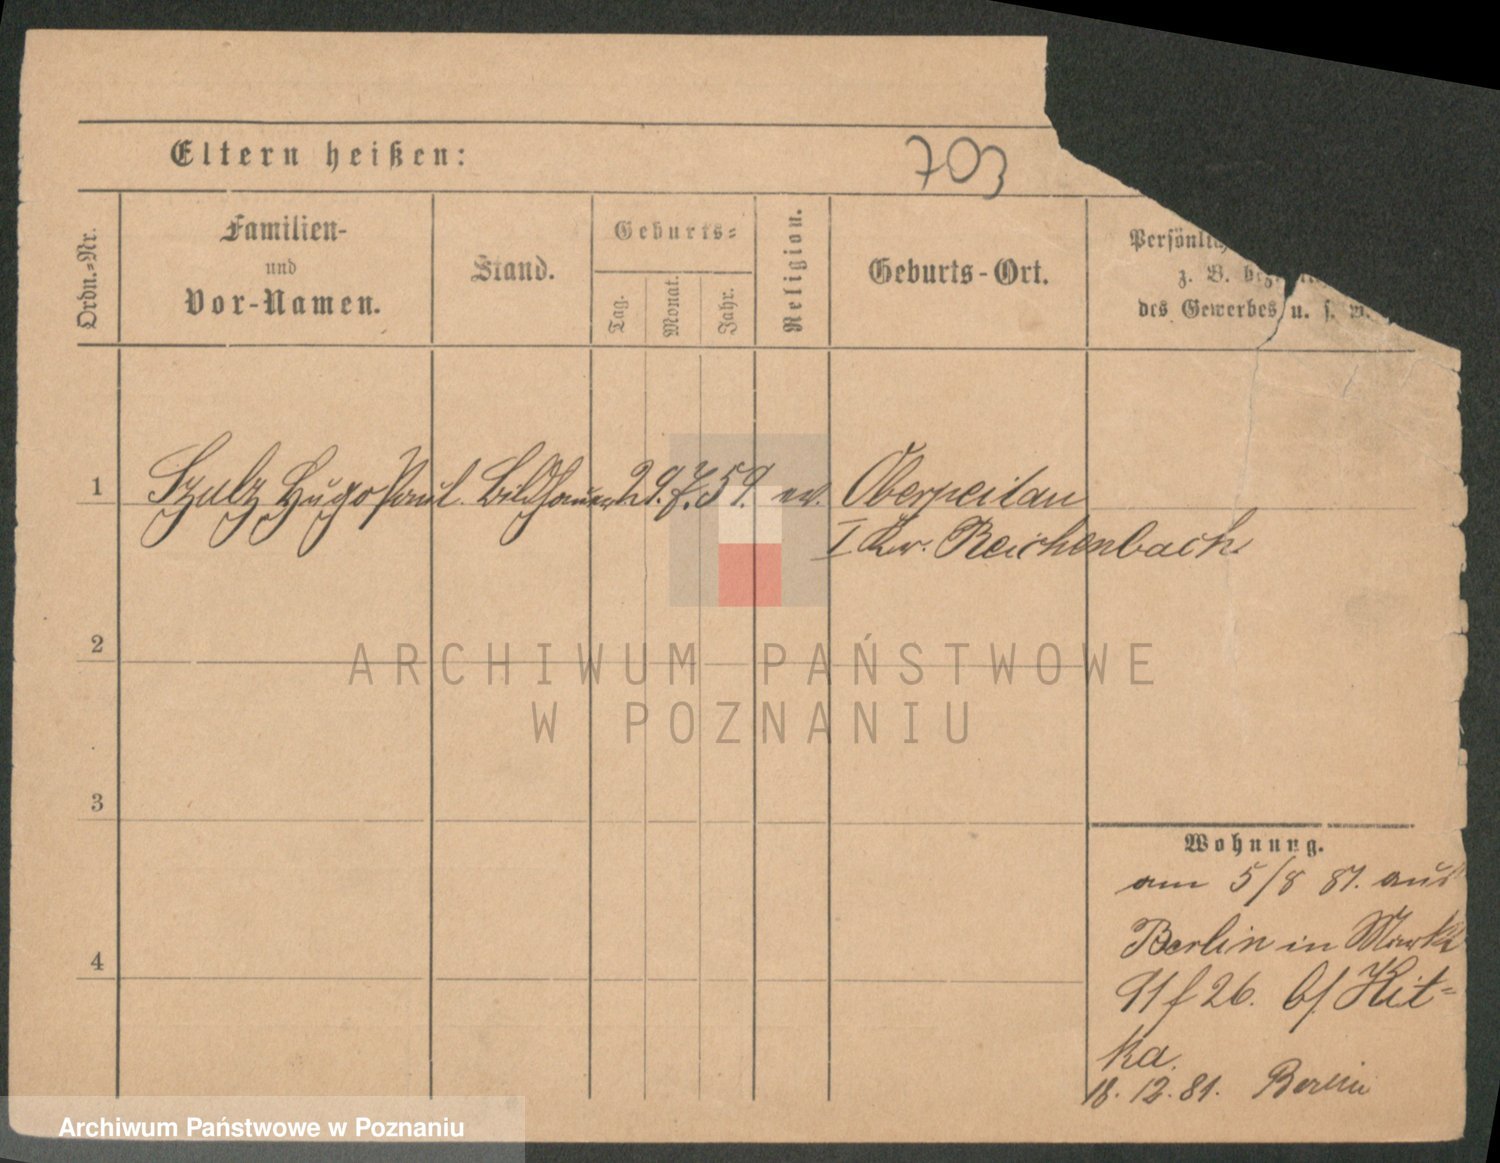 Eltern heißen:
703
Ordn.=Nr.
Familien-
und
Vor-Namen.
Stand.
Geburts=
Tag.
Monat.
Jahr.
Religion.
Geburts-Ort.
z. B.
des Gewerbes u. s. w.
1 Szulz Hugo Paul. Bildhauer 29. 7. 59. ev. Oberpeilau
I Kr. Reichenbach
2
3
4
Wohnung.
am 5/8 81. aus
Berlin in Markt
91 f 26. b/ Kit=
ka.
18. 12. 81. Berlin
ARCHIWUM PAŃSTWOWE
W POZNANIU
Archiwum Państwowe w Poznaniu